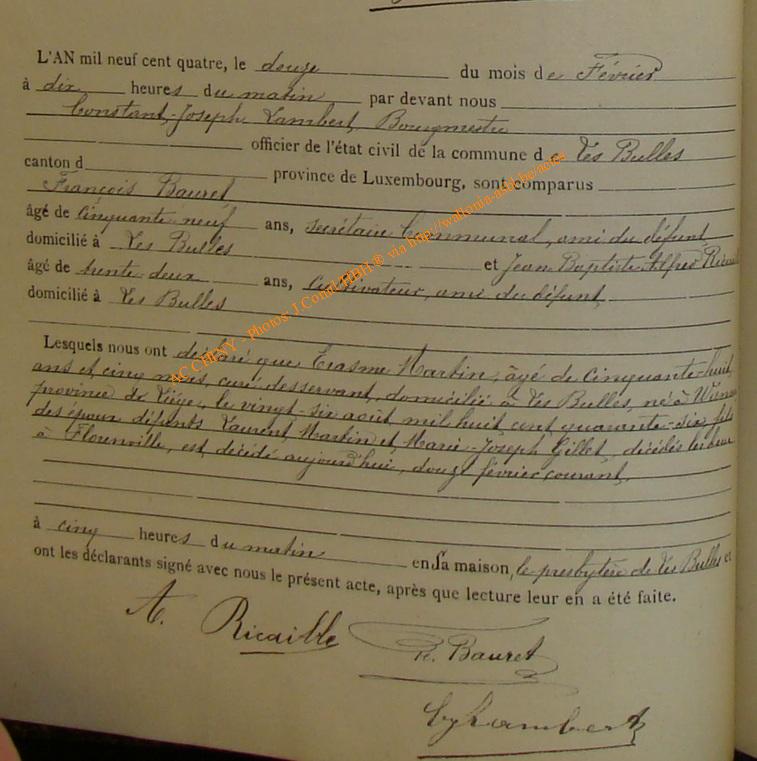 L'AN mil neuf cent quatre, le douze du mois de Février
à dix heures du matin par devant nous
Constant-Joseph Lambert, Bourgmestre
officier de l'état civil de la commune de Les Bulles
canton d province de Luxembourg, sont comparus
François Bauret
âgé de cinquante-neuf ans, secrétaire Communal, ami du défunt,
domicilié à Les Bulles et Jean Baptiste Alfred
âgé de trente-deux ans, Cultivateur, ami du défunt,
domicilié à Les Bulles
Lesquels nous ont déclaré que Erasme Martin, âgé de cinquante-huit
ans et cinq mois, curé desservant, domicilié à Les Bulles, né à
province de Liège, le vingt-six août mil huit cent quarante-six, fils
des époux défunts Laurent Martin et Marie-Joseph Gillet, décédés les deux
à Florenville, est décédé aujourd'hui, douze février courant,
à cinq heures du matin en Sa maison, le presbytère de Les Bulles et
ont les déclarants signé avec nous le présent acte, après que lecture leur en a été faite.
A. Ricaille
Bauret
Lambert
AC CHINY - Photos: J.Collin HBH ® via http://wallonia-asbl.be/actes